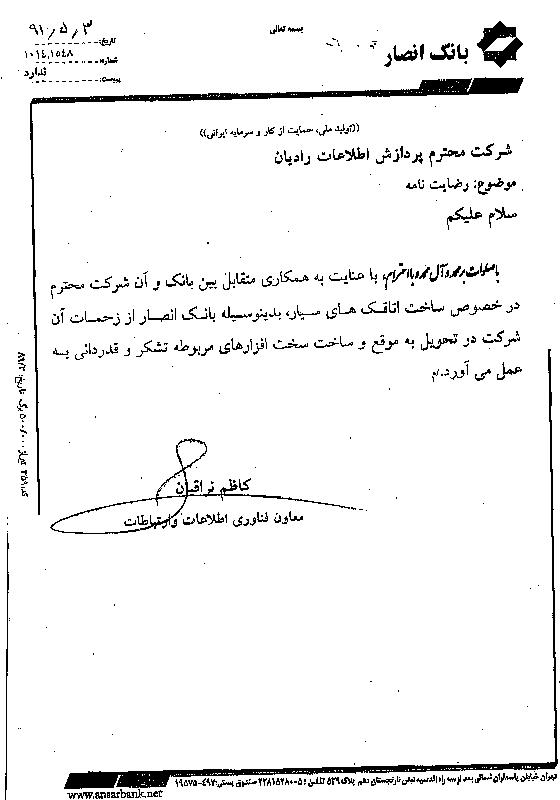 بسمه تعالی
بانک انصار
تاریخ: ۹۱/۵/۳
شماره: ۱۰۱۴,۱۵۴۸
پیوست: ندارد
((تولید ملی، حمایت از کار و سرمایه ایرانی))
شرکت محترم پردازش اطلاعات رادیان
موضوع: رضایت نامه
سلام علیکم
با صلوات بر محمد و آل محمد و با احترام، با عنایت به همکاری متقابل بین بانک و آن شرکت محترم
در خصوص ساخت اتاقک های سیار، بدینوسیله بانک انصار از زحمات آن
شرکت در تحویل به موقع و ساخت سخت افزارهای مربوطه تشکر و قدردانی به
عمل می آورد./م
کاظم نراقیان
معاون فناوری اطلاعات و ارتباطات
تهران خیابان پاسداران شمالی بعد از سه راه اقدسیه نبش نارنجستان دهم پلاک ۵۲۹ تلفن: ۵-۲۲۸۱۵۲۸۰ صندوق پستی: ۴۹۳-۱۹۵۷۵
www.ansarbank.net